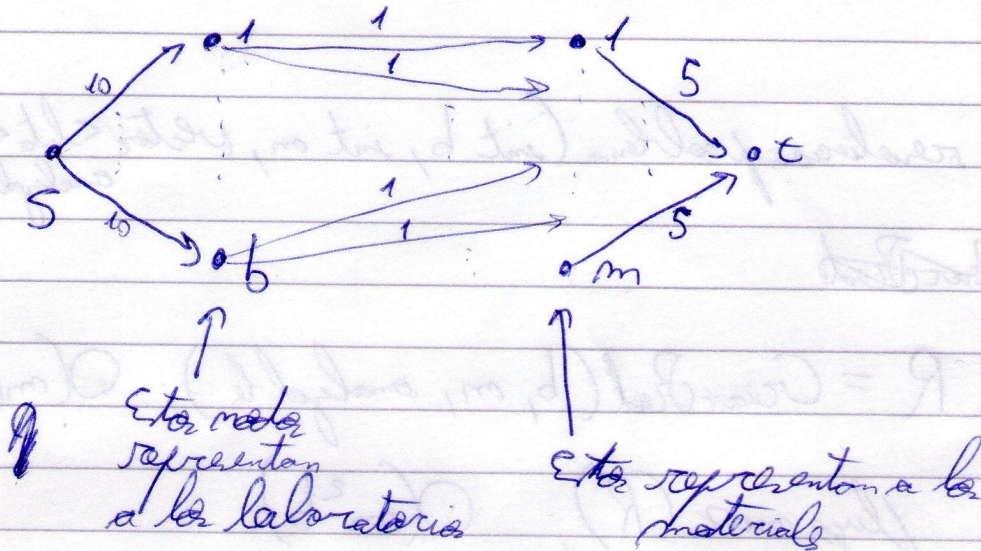 1 1 1
10 1 5
S t
10 1 5
1
b m
Estos nodos
representan
a los laboratorios
Estos representan a los
materiales